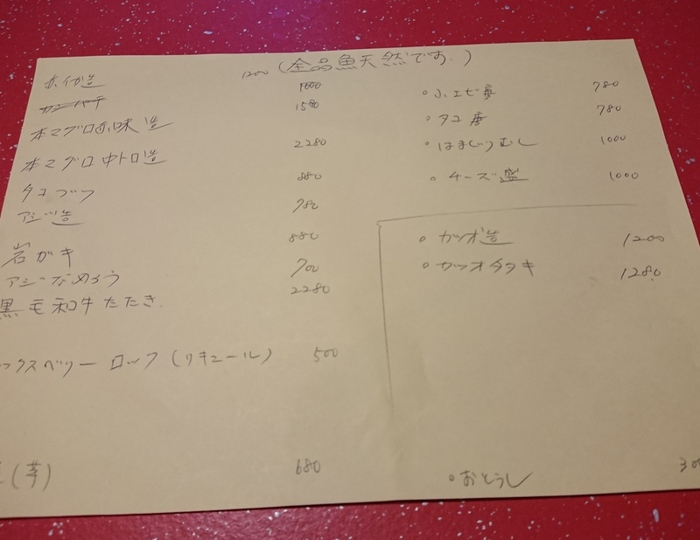 (全品魚天然です。)
1200
赤イカ造 1000
カンパチ 1580
本マグロ赤味造
本マグロ中トロ造 2280
タコブツ 880
アジ造 780
岩ガキ 880
アジなめろう 700
黒毛和牛たたき 2280
ックスベリー ロック(リキュール) 500
(芋) 680
780
780
○はまぐりむし 1000
○チーズ盛 1000
○カツオ造 1200
○カツオタタキ 1280
○おとうし 30